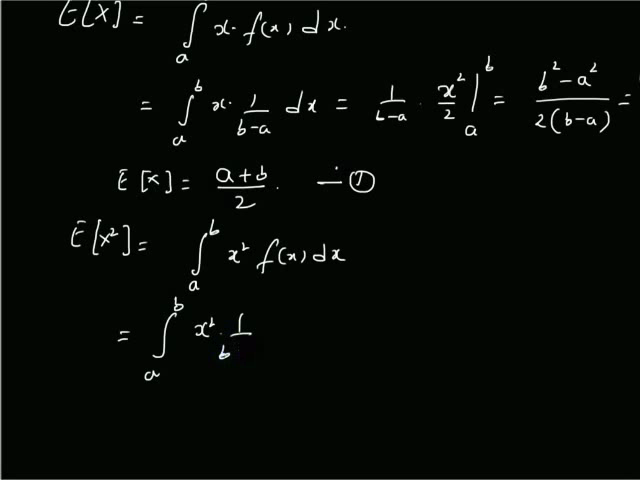 E[X] = ∫ₐ x · f(x) dx.
= ∫ₐᵇ x · 1/(b-a) dx = 1/(b-a) · x²/2 |ₐᵇ = (b² - a²)/(2(b-a)) =
E[X] = (a+b)/2 . — ①
E[X²] = ∫ₐᵇ x² f(x) dx
= ∫ₐᵇ x² · 1/b